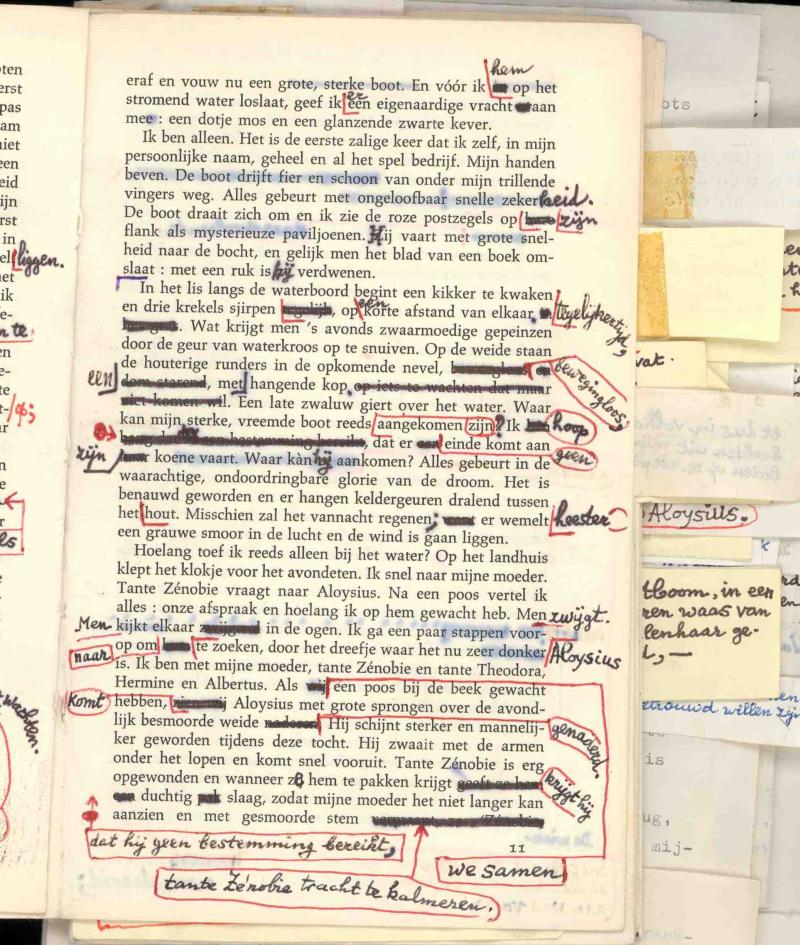 liggen.
hem
eraf en vouw nu een grote, sterke boot. En vóór ik op het
er
stromend water loslaat, geef ik een eigenaardige vracht aan
mee : een dotje mos en een glanzende zwarte kever.
Ik ben alleen. Het is de eerste zalige keer dat ik zelf, in mijn
persoonlijke naam, geheel en al het spel bedrijf. Mijn handen
beven. De boot drijft fier en schoon van onder mijn trillende
vingers weg. Alles gebeurt met ongeloofbaar snelle zekerheid.
De boot draait zich om en ik zie de roze postzegels op zijn
flank als mysterieuze paviljoenen. Hij vaart met grote snel-
heid naar de bocht, en gelijk men het blad van een boek om-
slaat : met een ruk is hij verdwenen.
In het lis langs de waterboord begint een kikker te kwaken
en drie krekels sjirpen tegelijk, op een korte afstand van elkaar, tegelijkertijd,
Wat krijgt men 's avonds zwaarmoedige gepeinzen
door de geur van waterkroos op te snuiven. Op de weide staan
de houterige runders in de opkomende nevel, bewegingloos,
een dom starend, met hangende kop, op iets te wachten dat maar
niet komen wil. Een late zwaluw giert over het water. Waar
kan mijn sterke, vreemde boot reeds aangekomen zijn? Ik hoop
dat er geen einde komt aan
zijn koene vaart. Waar kàn hij aankomen? Alles gebeurt in de
waarachtige, ondoordringbare glorie van de droom. Het is
benauwd geworden en er hangen keldergeuren dralend tussen
het hout. Misschien zal het vannacht regenen; want er wemelt heester
een grauwe smoor in de lucht en de wind is gaan liggen.
Hoelang toef ik reeds alleen bij het water? Op het landhuis
klept het klokje voor het avondeten. Ik snel naar mijne moeder.
Tante Zénobie vraagt naar Aloysius. Na een poos vertel ik
alles : onze afspraak en hoelang ik op hem gewacht heb. Men zwijgt.
Men kijkt elkaar zwijgend in de ogen. Ik ga een paar stappen voor-
naar op om te zoeken, door de dreefje waar het nu zeer donker Aloysius
is. Ik ben met mijne moeder, tante Zénobie en tante Theodora,
Hermine en Albertus. Als wij een poos bij de beek gewacht
komt hebben, Aloysius met grote sprongen over de avond-
lijk besmoorde weide naderen. Hij schijnt sterker en mannelij- genaderd.
ker geworden tijdens deze tocht. Hij zwaait met de armen
onder het lopen en komt snel vooruit. Tante Zénobie is erg
opgewonden en wanneer ze hem te pakken krijgt geeft ze hem krijgt hij
een duchtig pak slaag, zodat mijne moeder het niet langer kan
aanzien en met gesmoorde stem
dat hij geen bestemming bereikt,
11
we samen
tante Zénobie tracht te kalmeren.
vat.
Aloysius.
boom, in een
ren waas van
lenhaar ge-